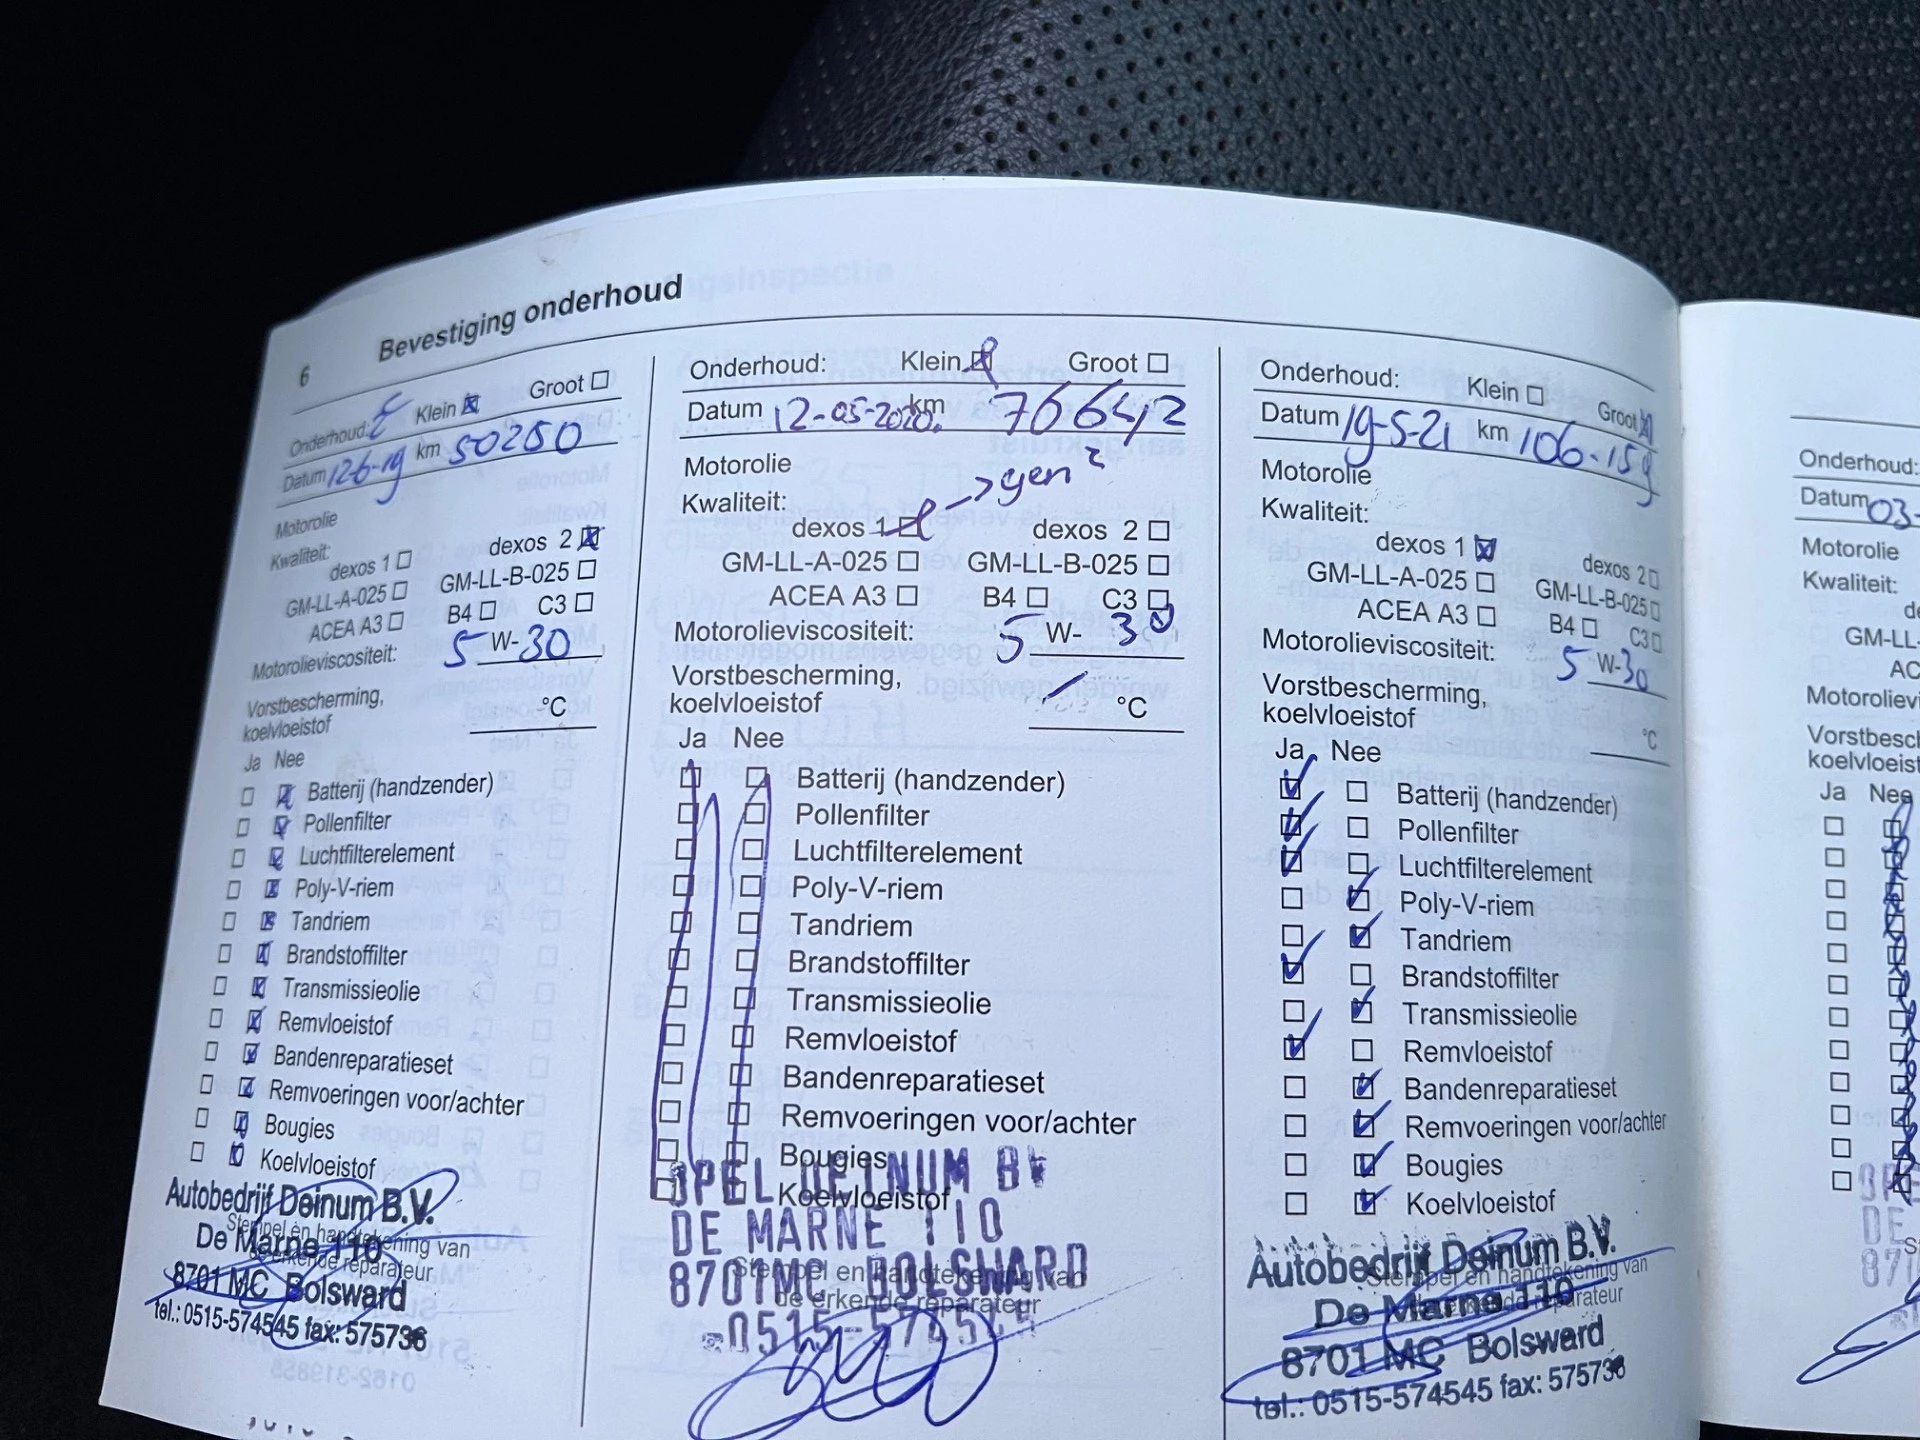 6 Bevestiging onderhoud
Onderhoud: Klein Groot
Datum 12-6-19 km 50250
Motorolie
Kwaliteit:
dexos 1 dexos 2
GM-LL-A-025 GM-LL-B-025
ACEA A3 B4 C3
Motorolieviscositeit: 5 W-30
Vorstbescherming,
koelvloeistof °C
Ja Nee
Batterij (handzender)
Pollenfilter
Luchtfilterelement
Poly-V-riem
Tandriem
Brandstoffilter
Transmissieolie
Remvloeistof
Bandenreparatieset
Remvoeringen voor/achter
Bougies
Koelvloeistof
Autobedrijf Deinum B.V.
Stempel en handtekening van
De Marne 110
de erkende reparateur
8701 MC Bolsward
tel.: 0515-574545 fax: 575736
Onderhoud: Klein Groot
Datum 12-05-2020 km 76642
Motorolie
Kwaliteit: -> gen 2
dexos 1 dexos 2
GM-LL-A-025 GM-LL-B-025
ACEA A3 B4 C3
Motorolieviscositeit: 5 W- 30
Vorstbescherming,
koelvloeistof °C
Ja Nee
Batterij (handzender)
Pollenfilter
Luchtfilterelement
Poly-V-riem
Tandriem
Brandstoffilter
Transmissieolie
Remvloeistof
Bandenreparatieset
Remvoeringen voor/achter
Bougies
OPEL DEINUM BV
Koelvloeistof
DE MARNE 110
Stempel en handtekening van
8701 MC BOLSWARD
de erkende reparateur
0515-574545
Onderhoud: Klein Groot
Datum 19-5-21 km 106.159
Motorolie
Kwaliteit:
dexos 1 dexos 2
GM-LL-A-025 GM-LL-B-025
ACEA A3 B4 C3
Motorolieviscositeit: 5 W-30
Vorstbescherming,
koelvloeistof °C
Ja Nee
Batterij (handzender)
Pollenfilter
Luchtfilterelement
Poly-V-riem
Tandriem
Brandstoffilter
Transmissieolie
Remvloeistof
Bandenreparatieset
Remvoeringen voor/achter
Bougies
Koelvloeistof
Autobedrijf Deinum B.V.
Stempel en handtekening van
De Marne 110
de erkende reparateur
8701 MC Bolsward
tel.: 0515-574545 fax: 575736
Onderhoud:
Datum 03-
Motorolie
Kwaliteit:
de
GM-LL-
AC
Motorolievi
Vorstbesch
koelvloeist
Ja Nee
OPE
DE
870